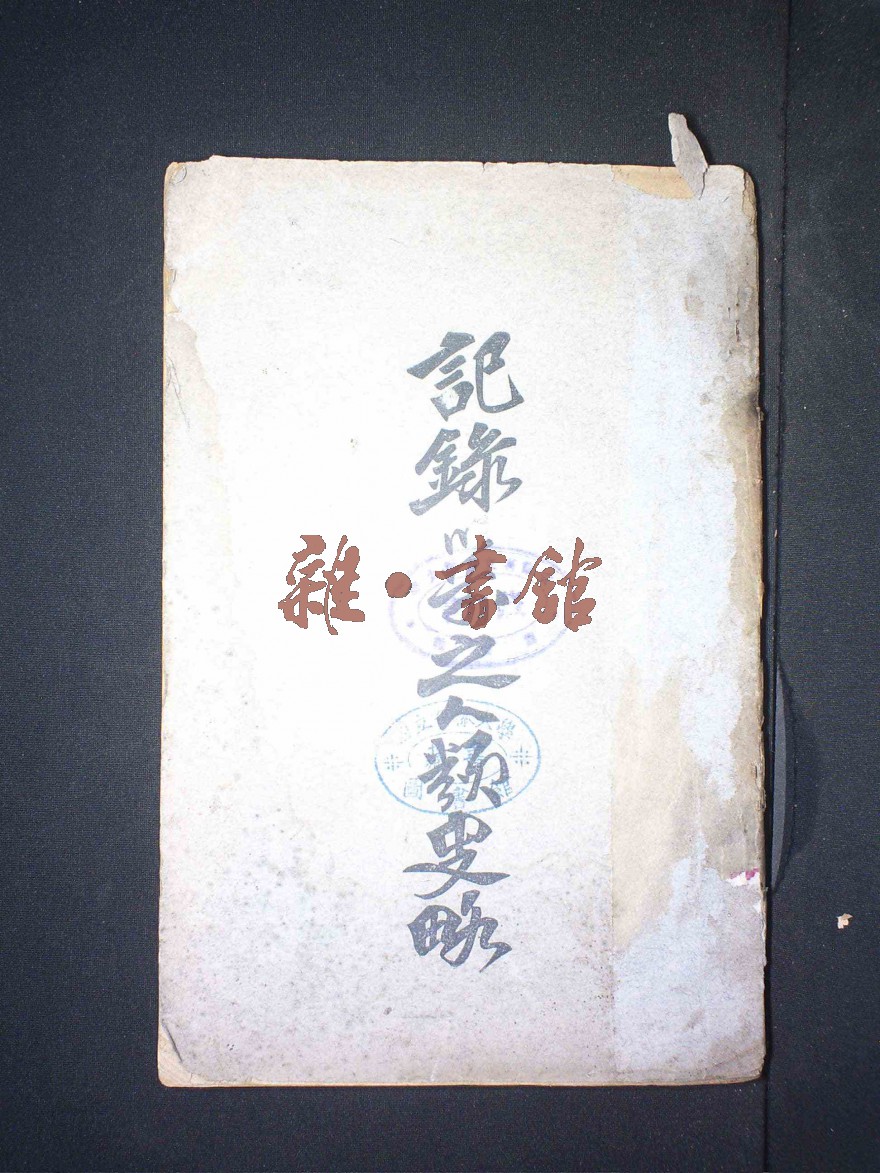 記錄以前之人類史略
雜·書館